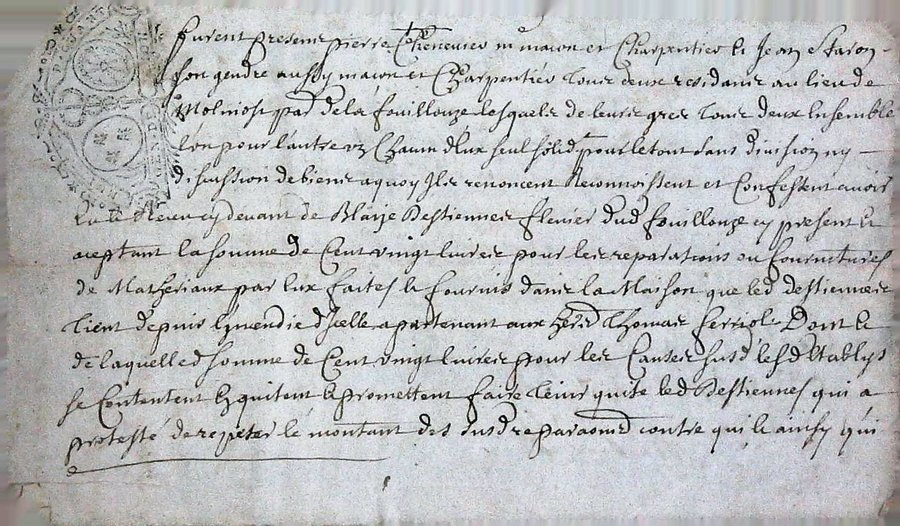 furent presens pierre Cheneuier mᵉ maçon et Charpentier & Jean
son gendre aussy maçon et Charpentier tous deux residans au lieu de
par de la fouillouze lesquels de leurs gres tous deux Ensemble
l'un pour l'autre Chacun d'Eux seul solid pour le tout sans diuision ny
discussion de biens a quoy Ils renoncent Reconnoissent et Confessent auoir
Eu & Receu cy deuant de Blaise Destiennes dud fouillouze cy present &
aceptant la somme de Cent vingt liures pour les reparations ou fournitures
de Matheriaux par Eux faites & fournis dans la Maison que led destiennes
tient depuis d'Icelle apartenant aux Thomas ferriol Dont &
de laquelle d somme de Cent vingt liures pour les Causes susd lesd Etablys
se Contentent & quitent & promettent faire tenir quite led Destiennes qui a
protesté de repeter le montant des susd reparaoñs contre qui & ainsy qui